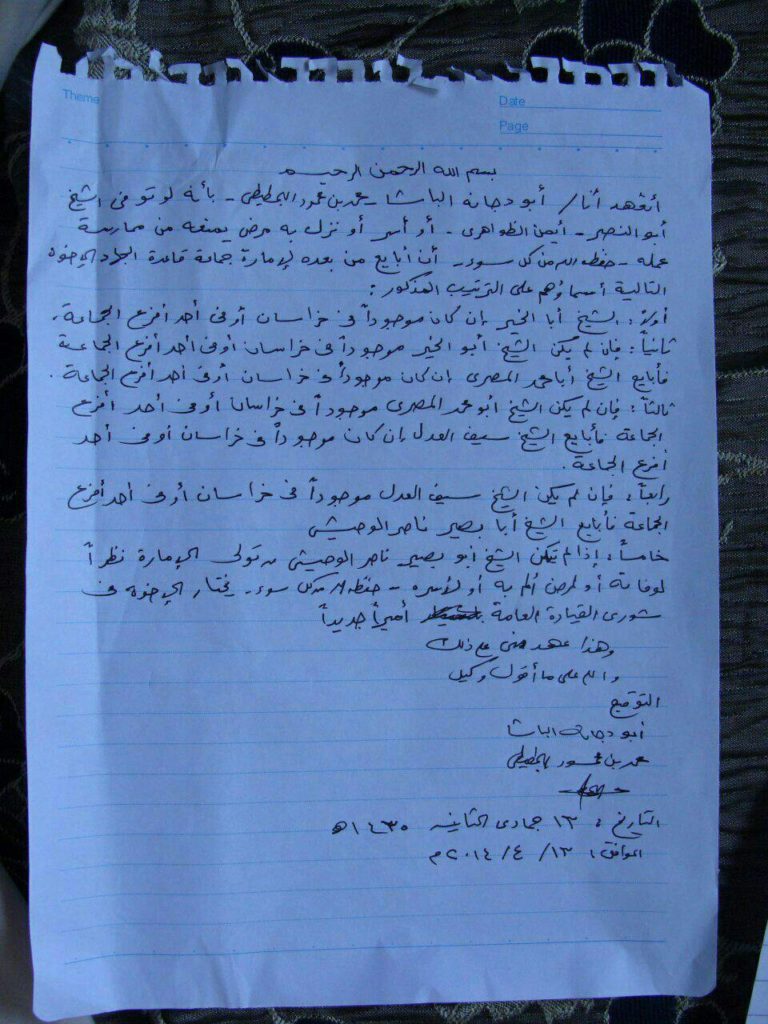 Theme
Date
Page
بسم الله الرحمن الرحيم
أتعهد أنا/ أبو دجانه الباشا - محمد بن محمود البحطيطي - بأنه لو توفى الشيخ
أبو النصير - أيمن الظواهري - أو أسر أو نزل به مرض يمنعه من ممارسة
عمله - حفظه الله من كل سوء - أن أبايع من بعده لإمارة جماعة قاعدة الجهاد الإخوة
التالية أسماؤهم على الترتيب المذكور :
أولاً : الشيخ أبا الخير إن كان موجوداً في خراسان أو في أحد أفرع الجماعة .
ثانياً : فإن لم يكن الشيخ أبو الخير موجوداً في خراسان أو في أحد أفرع الجماعة
فأبايع الشيخ أبا محمد المصرى إن كان موجوداً في خراسان أو في أحد أفرع الجماعة .
ثالثاً : فإن لم يكن الشيخ أبو محمد المصرى موجوداً في خراسان أو في أحد أفرع
الجماعة فأبايع الشيخ سيف العدل إن كان موجوداً في خراسان أو في أحد
أفرع الجماعة .
رابعاً : فإن لم يكن الشيخ سيف العدل موجوداً في خراسان أو في أحد أفرع
الجماعة فأبايع الشيخ أبا بصير ناصر الوحيشي
خامساً : إذا لم يتمكن الشيخ أبو بصير ناصر الوحيشي من تولى الإمارة نظراً
لوفاته أو لمرض ألم به أو لأسره - حفظه الله من كل سوء - يختار الإخوة في
شورى القيادة العامة أميراً جديداً
وهذا عهد منى على ذلك
والله على ما أقول وكيل
التوقيع
أبو دجانه الباشا
محمد بن محمود البحطيطي
التاريخ : ١٣ جمادى الثانية ١٤٣٥ ه
الموافق : ١٣ / ٤ / ٢٠١٤ م